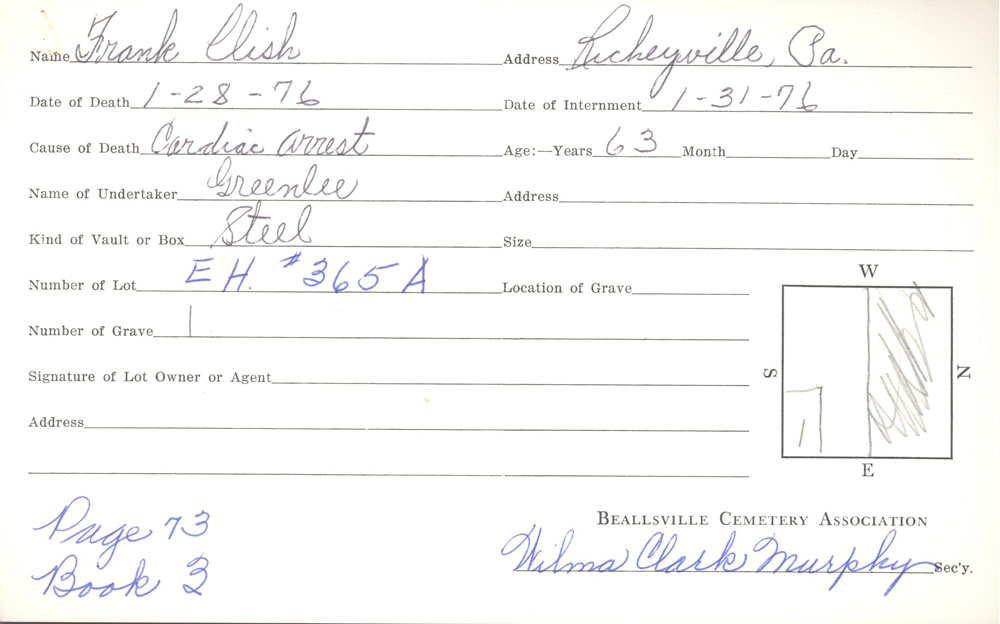 Name Frank Clish Address Richeyville, Pa.
Date of Death 1-28-76 Date of Internment 1-31-76
Cause of Death Cardiac arrest Age:—Years 63 Month Day
Name of Undertaker Greenlee Address
Kind of Vault or Box Steel Size
Number of Lot E H. #365 A Location of Grave
Number of Grave 1
Signature of Lot Owner or Agent
Address
W
S
N
1
E
Page 73
Book 3
Beallsville Cemetery Association
Wilma Clark Murphy Sec'y.